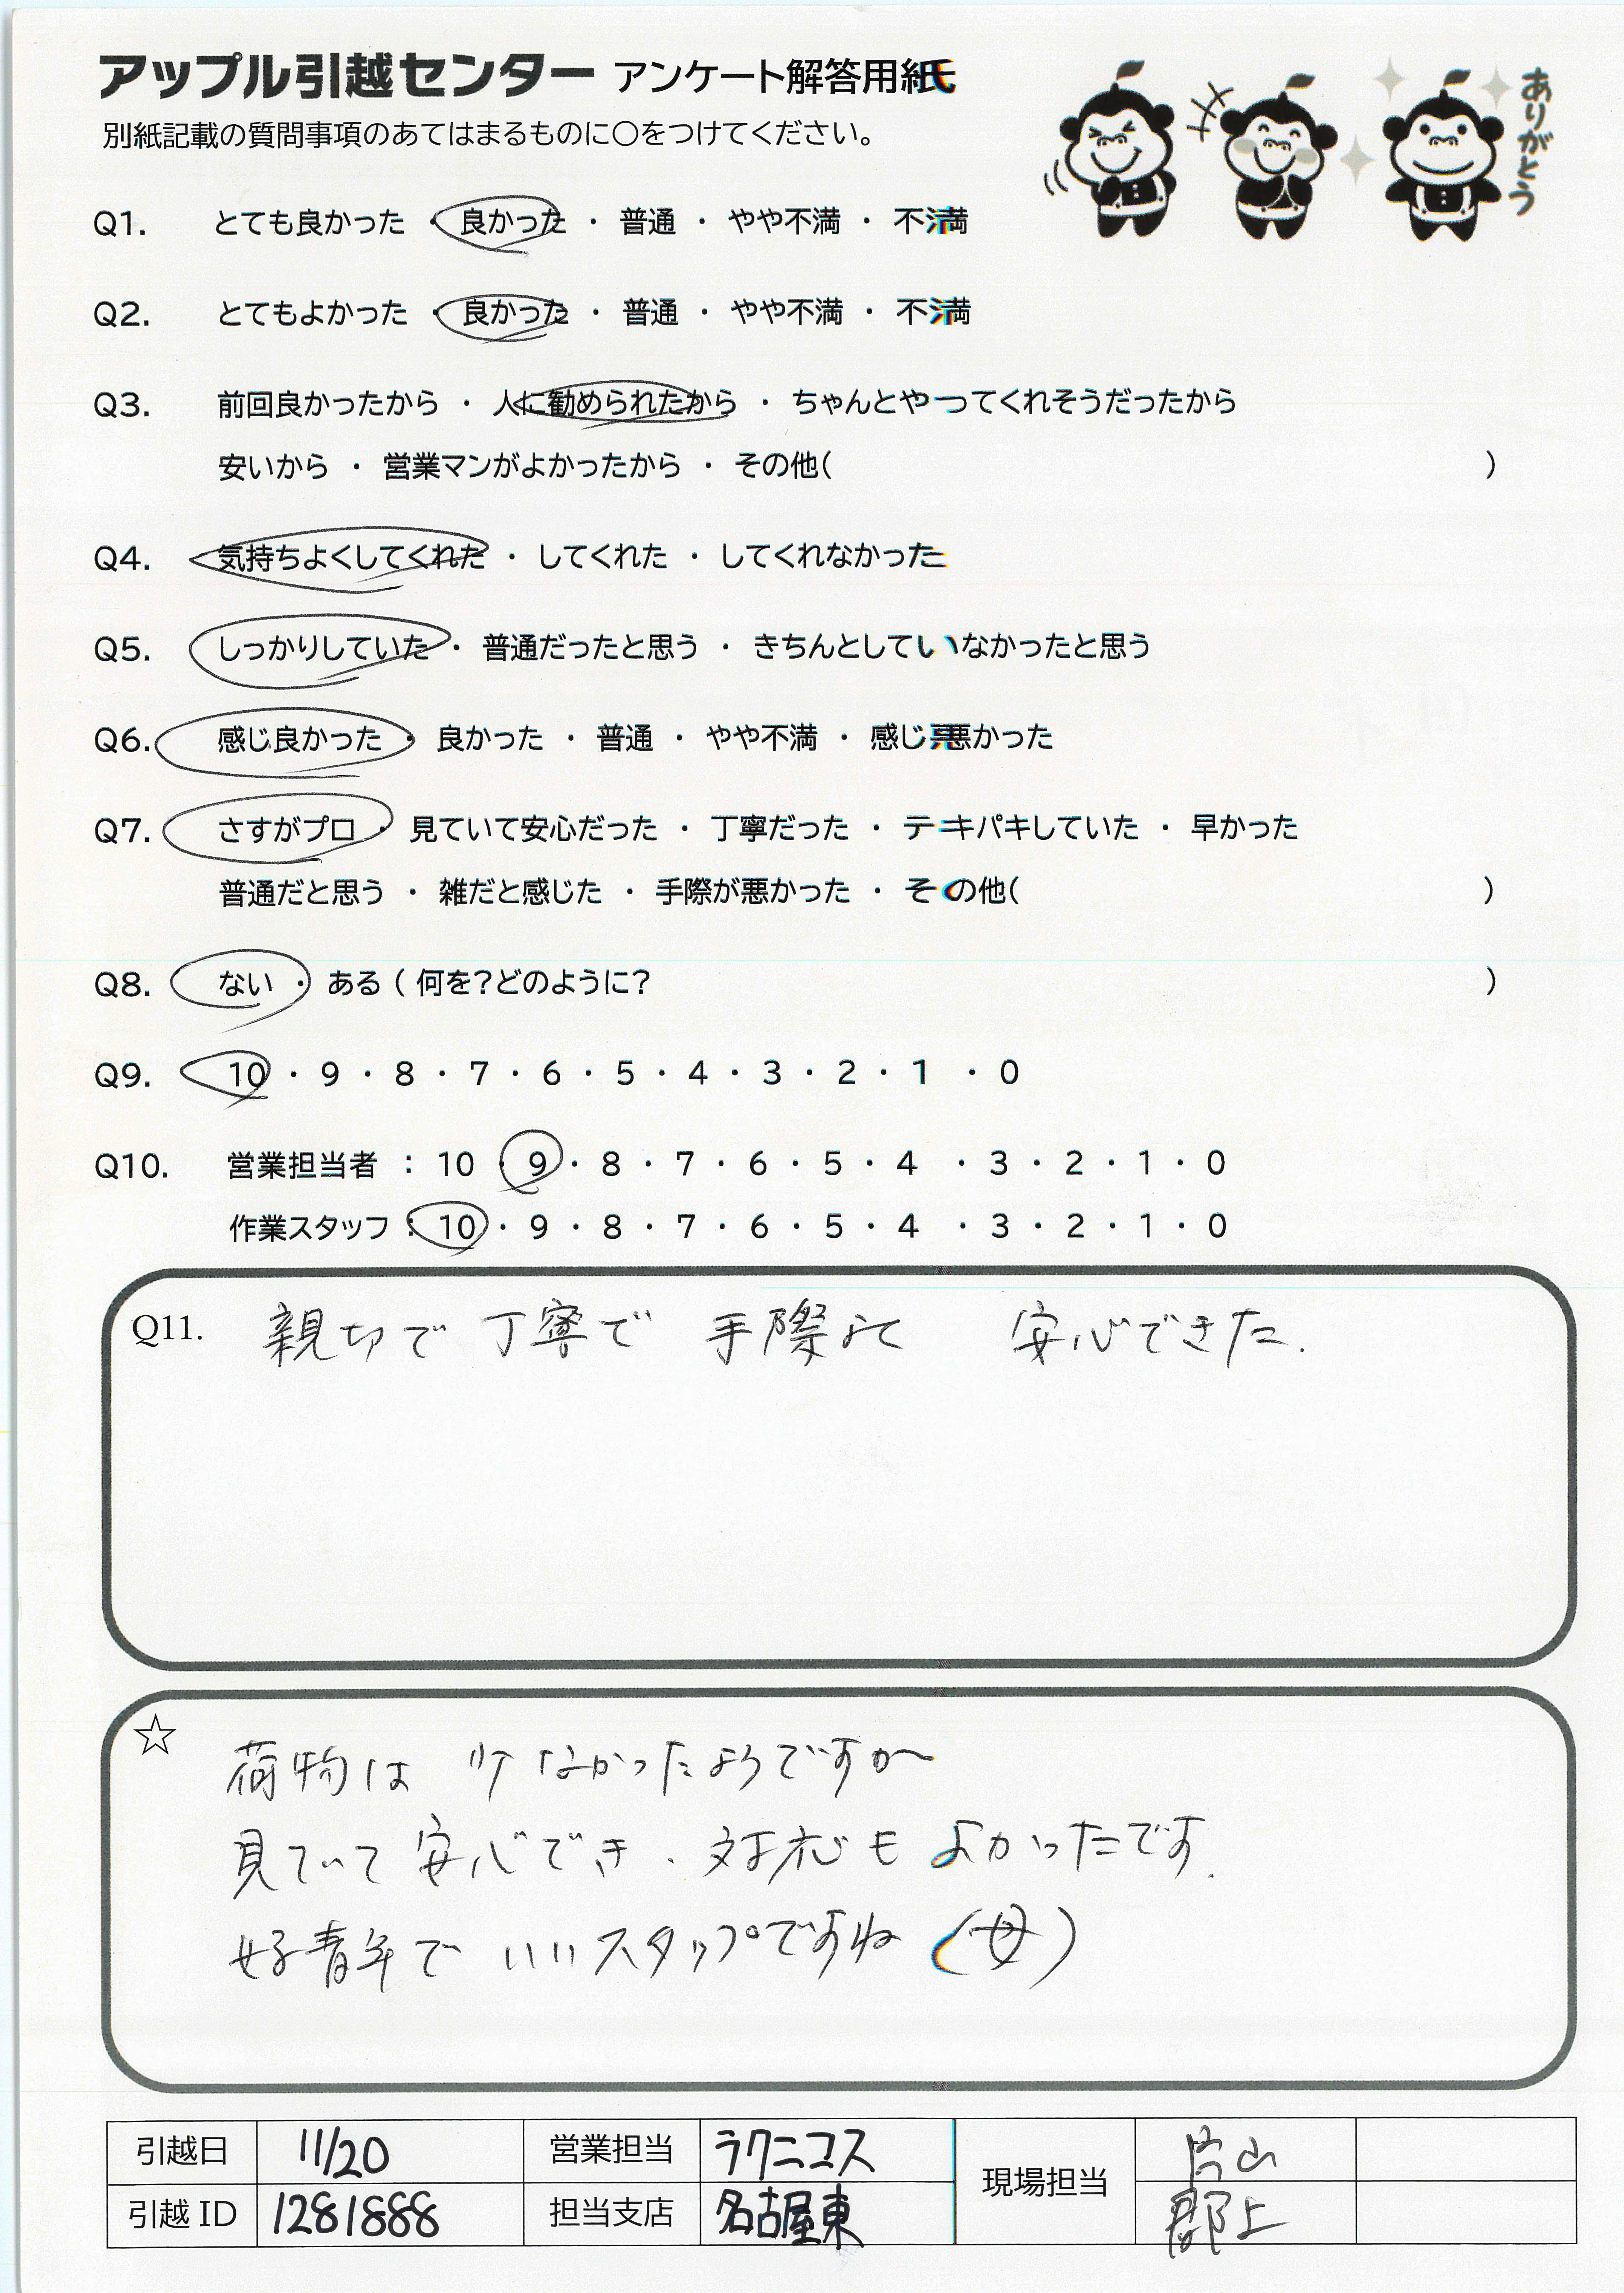 アップル引越センター アンケート解答用紙
別紙記載の質問事項のあてはまるものに〇をつけてください。
ありがとう
Q1. とても良かった ・ 良かった ・ 普通 ・ やや不満 ・ 不満
Q2. とてもよかった ・ 良かった ・ 普通 ・ やや不満 ・ 不満
Q3. 前回良かったから ・ 人に勧められたから ・ ちゃんとやってくれそうだったから
安いから ・ 営業マンがよかったから ・ その他( )
Q4. 気持ちよくしてくれた ・ してくれた ・ してくれなかった
Q5. しっかりしていた ・ 普通だったと思う ・ きちんとしていなかったと思う
Q6. 感じ良かった ・ 良かった ・ 普通 ・ やや不満 ・ 感じ悪かった
Q7. さすがプロ ・ 見ていて安心だった ・ 丁寧だった ・ テキパキしていた ・ 早かった
普通だと思う ・ 雑だと感じた ・ 手際が悪かった ・ その他( )
Q8. ない ・ ある ( 何を?どのように? )
Q9. 10 ・ 9 ・ 8 ・ 7 ・ 6 ・ 5 ・ 4 ・ 3 ・ 2 ・ 1 ・ 0
Q10. 営業担当者 : 10 ・ 9 ・ 8 ・ 7 ・ 6 ・ 5 ・ 4 ・ 3 ・ 2 ・ 1 ・ 0
作業スタッフ : 10 ・ 9 ・ 8 ・ 7 ・ 6 ・ 5 ・ 4 ・ 3 ・ 2 ・ 1 ・ 0
Q11. 親切で 丁寧で 手際よく 安心できた.
☆ 荷物は 少なかったようですが
見ていて 安心でき、対応も よかったです.
好青年で いいスタッフですね (母)
引越日 11/20 営業担当 ラクニコス 現場担当 片山
引越ID 1281888 担当支店 名古屋東 郡上